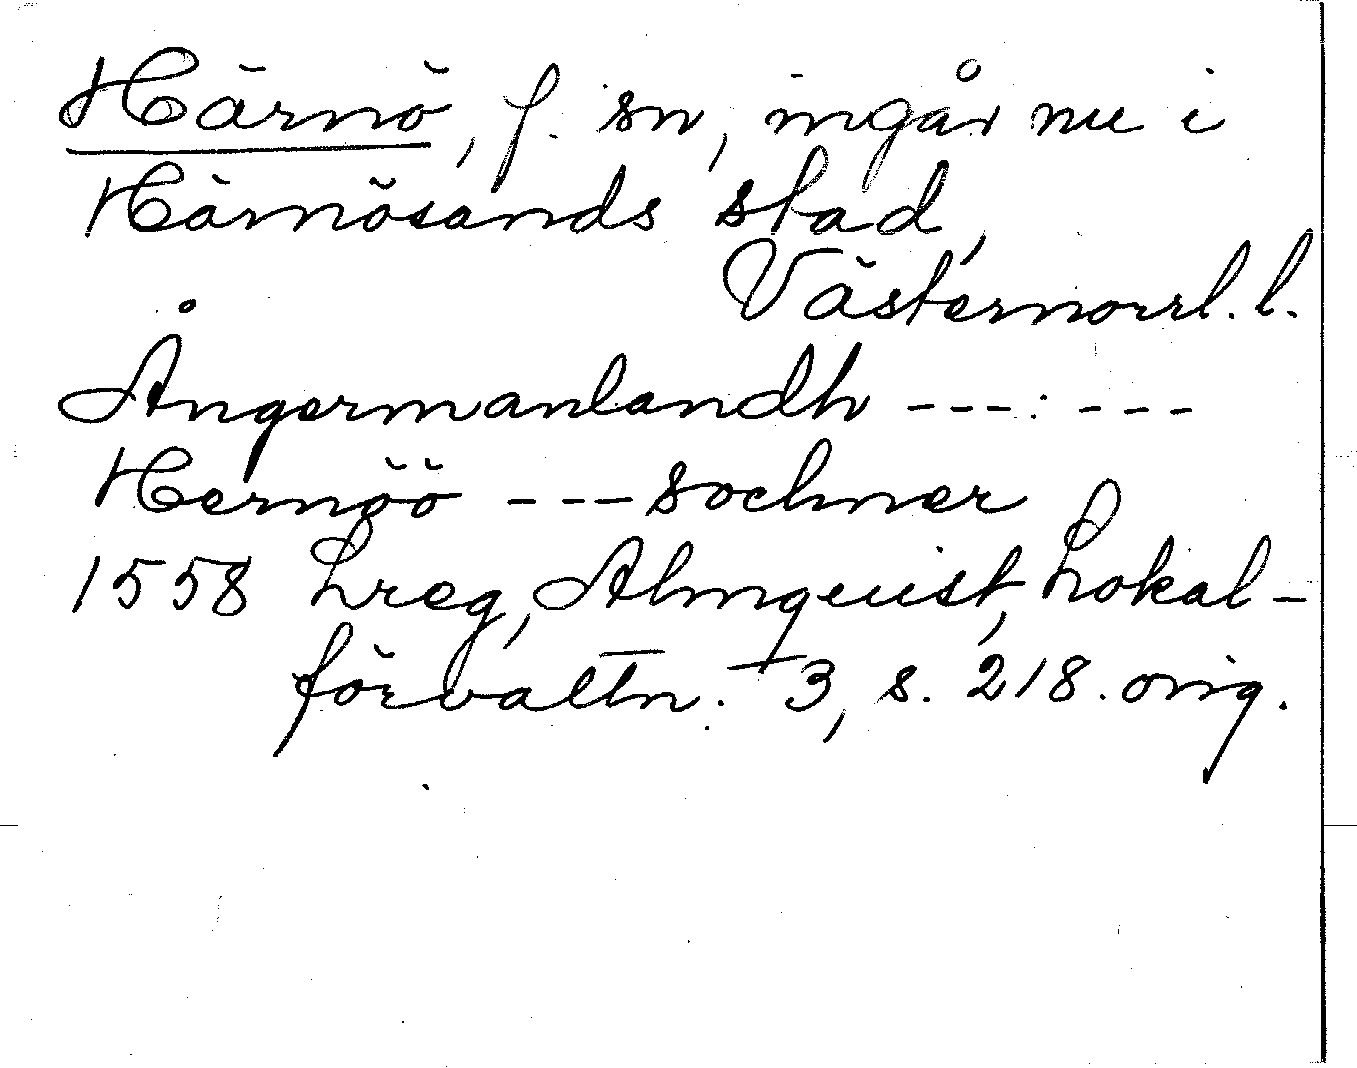 Härnö, f. sn, ingår nu i
Härnösands stad,
Västernorrl. l.
Ångermanlandh ---:---
Hernöö --- sochner
1558 Lreg, Almquist, Lokal-
förvaltn. 3, s. 218. orig.